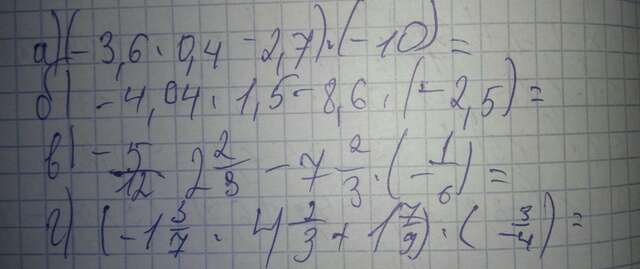 а) (-3,6 · 0,4 - 2,7) · (-10) =
б) -4,04 · 1,5 - 8,6 · (-2,5) =
в) -5/12 2 2/3 - 7 2/3 · (-1/6) =
г) (-1 3/7 · 4 2/3 + 1 7/9) · (-3/4) =